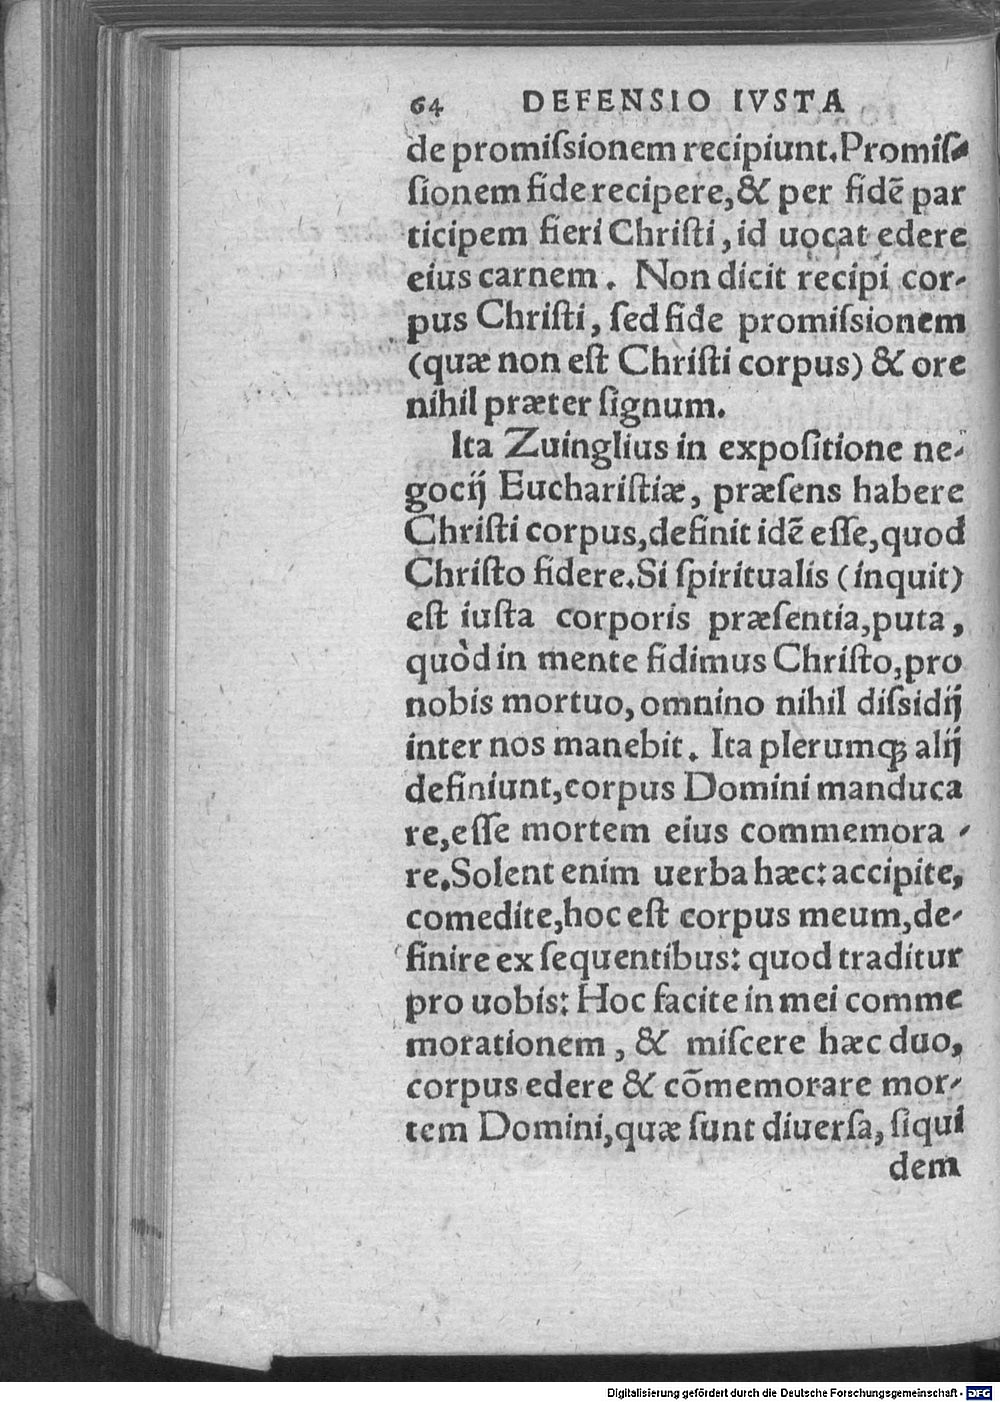 64 DEFENSIO IVSTA
de promiſsionem recipiunt. Promiſ-
ſionem fide recipere, & per fidē par
ticipem fieri Chriſti, id uocat edere
eius carnem. Non dicit recipi cor-
pus Chriſti, ſed fide promiſsionem
(quæ non eſt Chriſti corpus) & ore
nihil præter ſignum.
Ita Zuinglius in expoſitione ne-
gocij Euchariſtiæ, præſens habere
Chriſti corpus, definit idē eſſe, quod
Chriſto fidere. Si ſpiritualis (inquit)
eſt iuſta corporis præſentia, puta,
quòd in mente fidimus Chriſto, pro
nobis mortuo, omnino nihil diſsidij
inter nos manebit. Ita plerumq; alij
definiunt, corpus Domini manduca
re, eſſe mortem eius commemora-
re. Solent enim uerba hæc: accipite,
comedite, hoc eſt corpus meum, de-
finire ex ſequentibus: quod traditur
pro uobis: Hoc facite in mei comme
morationem, & miſcere hæc duo,
corpus edere & cōmemorare mor-
tem Domini, quæ ſunt diuerſa, ſiqui
dem
Digitalisierung gefördert durch die Deutsche Forschungsgemeinschaft - DFG